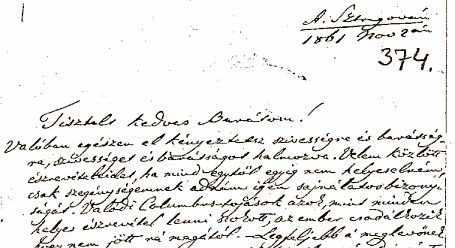 A. Sztregován
1861 Nov 2án
374.
Tisztelt kedves Barátom!
Valóban egészen el kényeztetsz szivességre és barátság-
ra, szivességet és barátságot halmozva. Velem közlött
észrevételeidet, ha mind egytől egyig nem helyeselném,
csak szegénységemnek adnám igen sajnálatos bizonyi-
ságát. Valódi Columbus tojások azok, mint minden
helyes észrevétel lenni szokott, az ember csodálkozik
hogy nem jött rá magától. Legfeljebb a meglevőnek